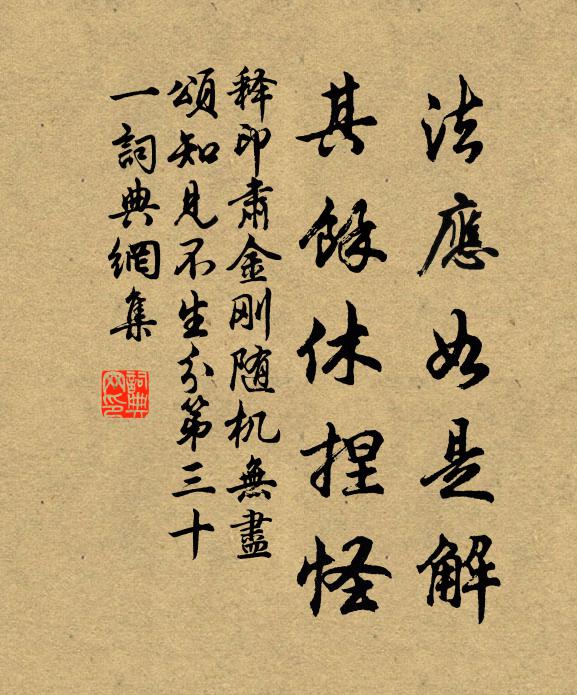 法應如是解
其餘休捏怪
释印肅金刚随机無盡
頌知見不生分第三十
一詞典網集
詞典網印